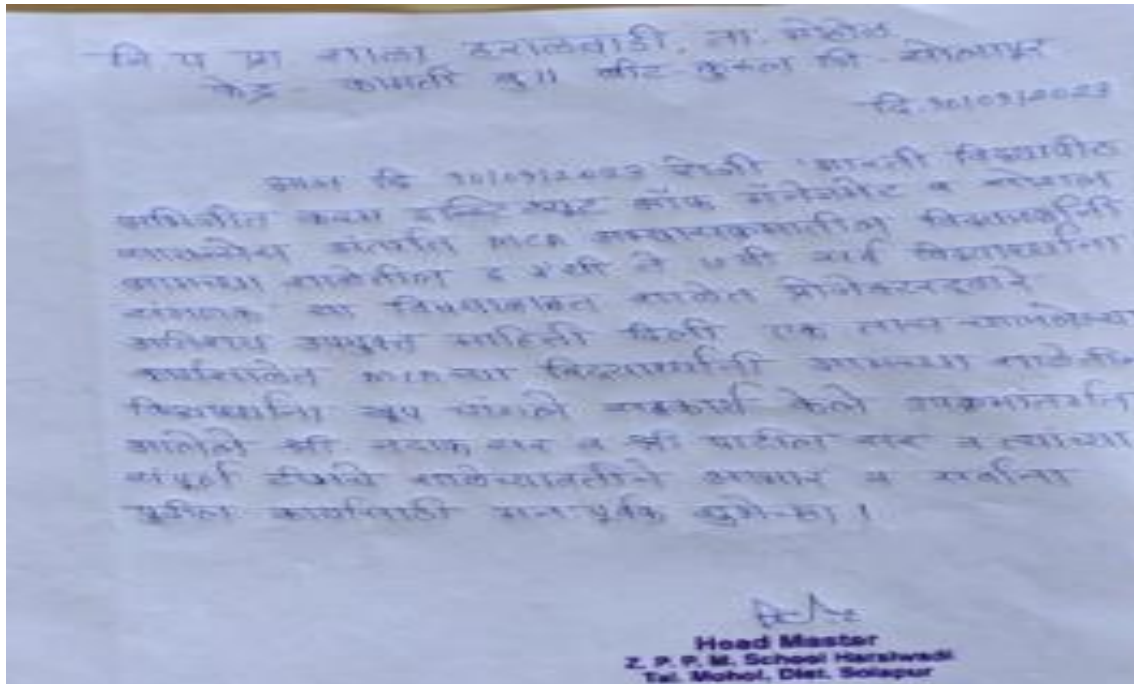 जि प प्रा शाला हराळवाडी, ता. मोहोळ
केंद्र - कामती बु॥ बीट-कुरुल जि - सोलापूर
दि.
आज दि रोजी भारती विद्यापीठ
अभिजीत कदम इन्स्टिट्यूट ऑफ मॅनेजमेंट व सोशल
सायन्सेस अंतर्गत MCA अभ्यासक्रमातील विद्यार्थ्यांनी
आमच्या शाळेतील इ ते ७वी सर्व विद्यार्थ्यांना
संगणक या विषयाबाबत शाळेत प्रोजेक्टरद्वारे
अतिशय उपयुक्त माहिती दिली एक तास चाललेल्या
कार्यशाळेत MCA च्या विद्यार्थ्यांनी आमच्या शाळेतील
विद्यार्थ्यांना खूप चांगले सहकार्य केले
आलेले श्री नदाफ सर व श्री पाटील सर व त्यांच्या
संपूर्ण टीमचे शाळेच्यावतीने आभार व सर्वांना
पुढील कार्यासाठी मनःपूर्वक शुभेच्छा !
Head Master
Z. P. P. M. School Haralwadi
Tal. Mohol, Dist. Solapur